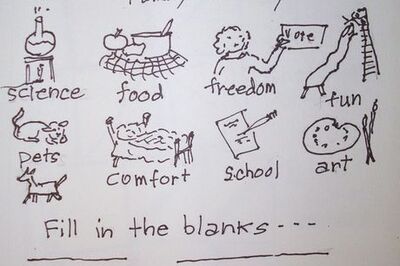 Vote
science food freedom fun
pets comfort school art
Fill in the blanks ---